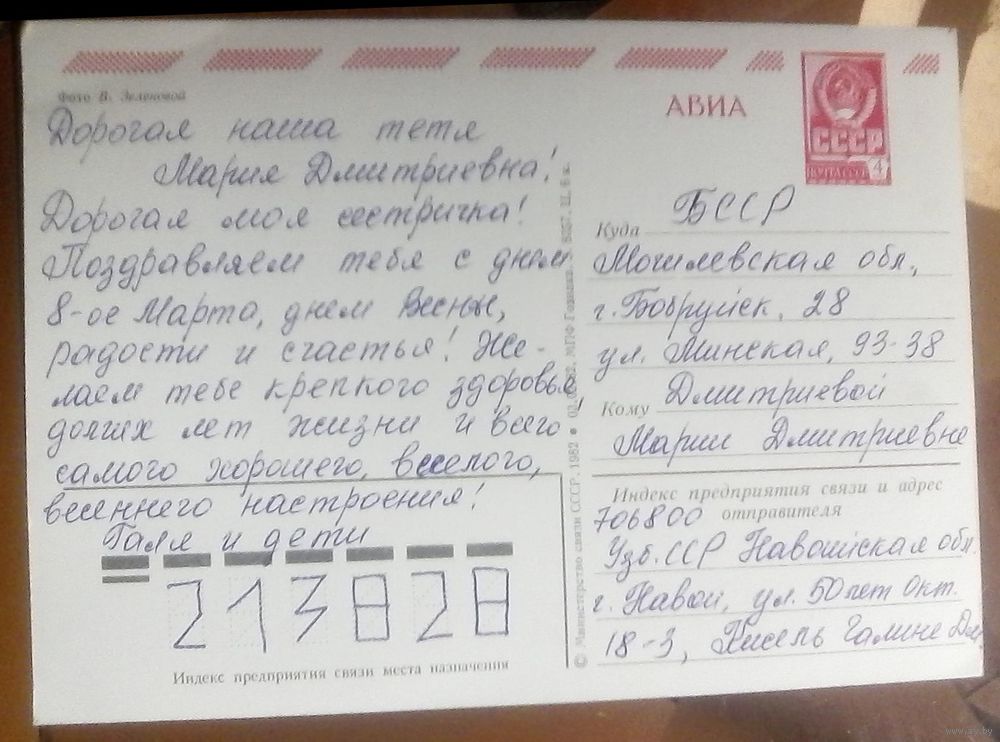 Фото В. Зеленовой
АВИА
СССР
ПОЧТА СССР 4
Дорогая наша тетя
Мария Дмитриевна!
Дорогая моя сестричка!
Поздравляем тебя с днем
8-ое Марта, днем Весны,
радости и счастья! Же-
лаем тебе крепкого здоровья
долгих лет жизни и всего
самого хорошего, веселого,
весеннего настроения!
Галя и дети
213828
Индекс предприятия связи места назначения
© Министерство связи СССР. 1982 МПФ Гознака. Ц. 6 к.
Куда БССР
Могилевская обл.,
г. Бобруйск, 28
ул. Минская, 93-38
Кому Дмитриевой
Марии Дмитриевне
Индекс предприятия связи и адрес
706800 отправителя
Узб.ССР Навоийская обл.
г. Навои, ул. 50 лет Окт.
18-3, Кисель Галине
www.ay.by